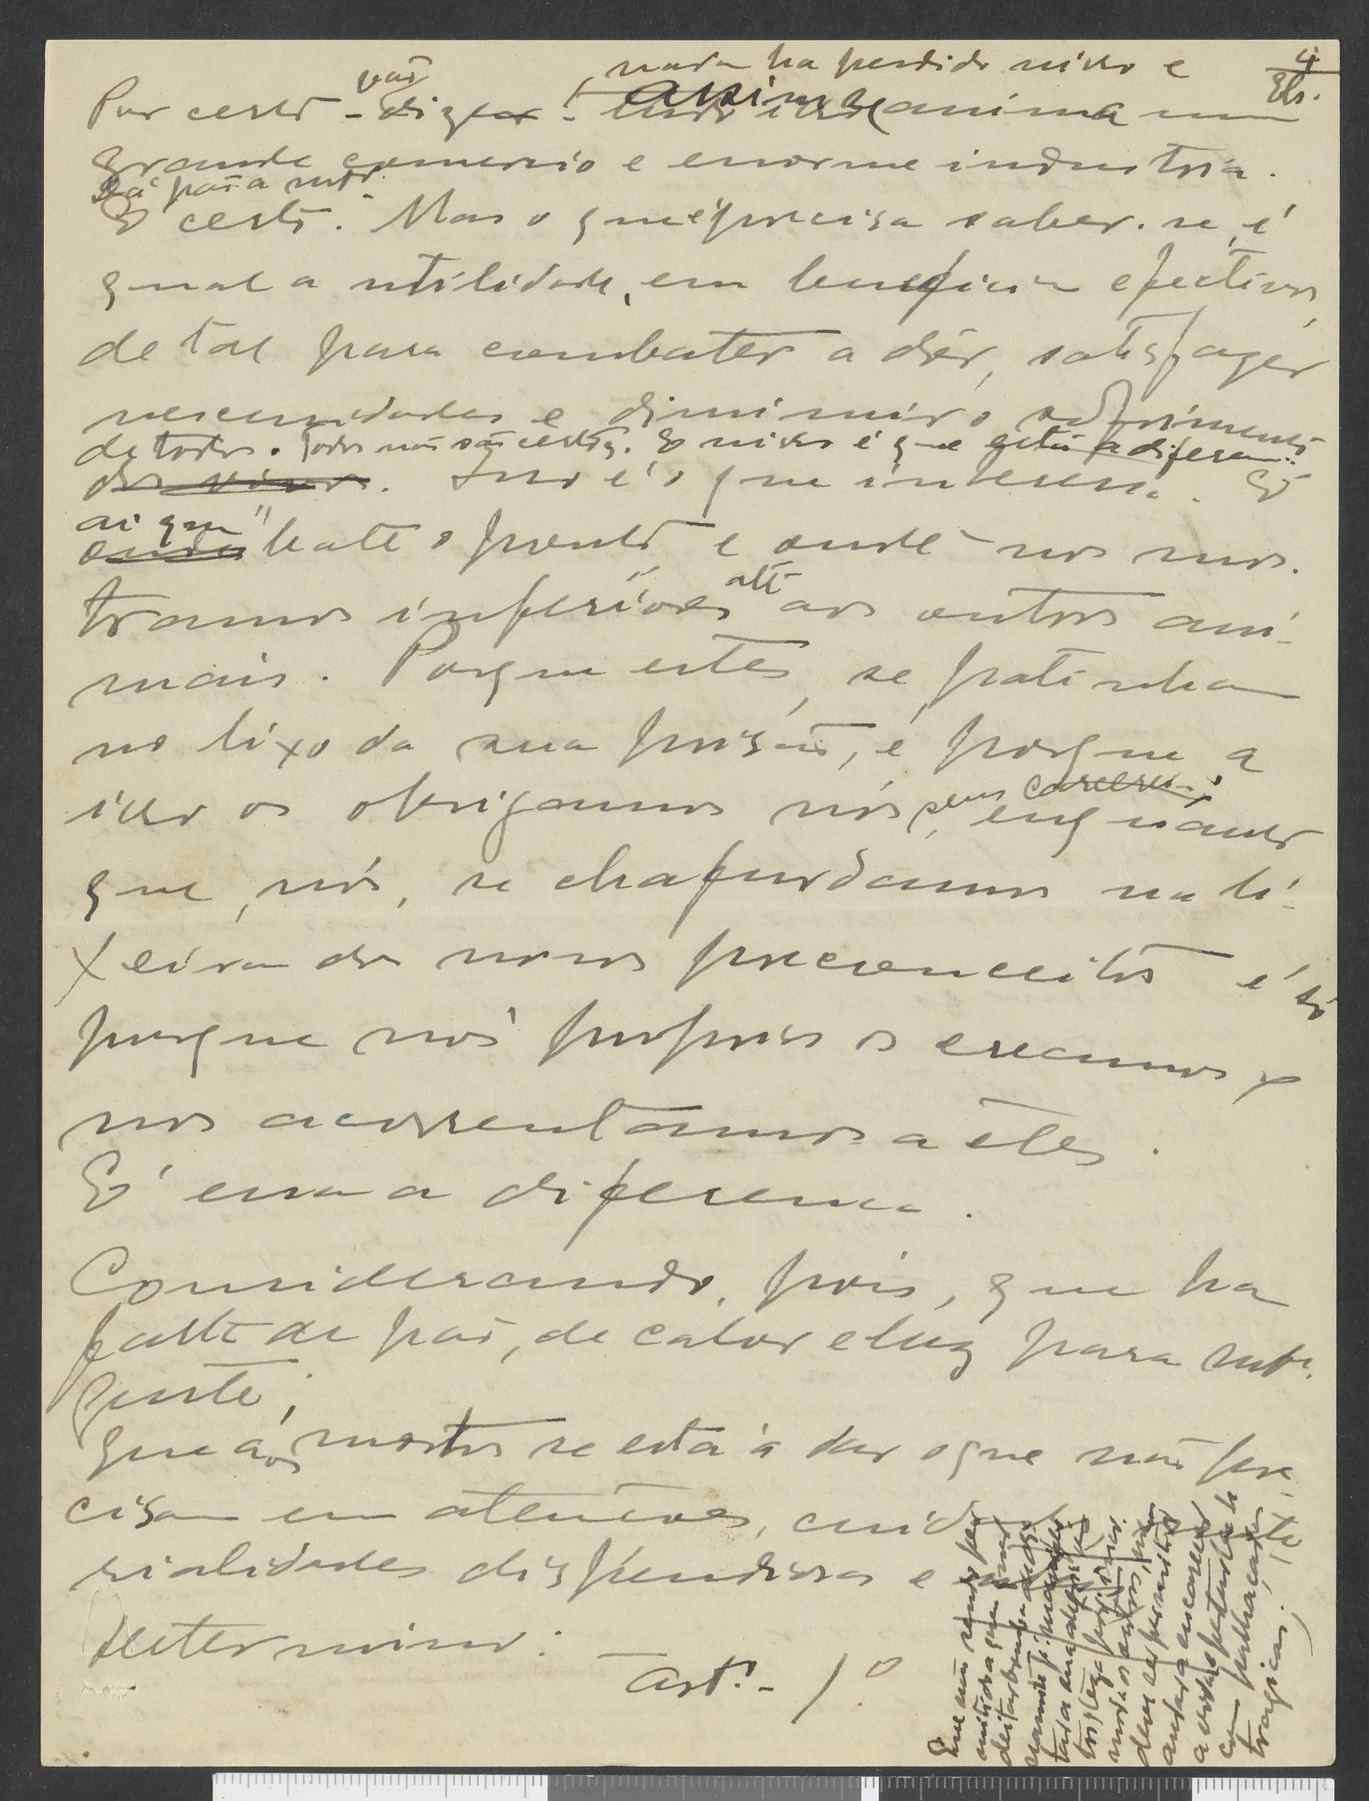 4
nada ha perdido nisso e
vão
Por certo - dizer - assim se anima um
grande comercio e enorme industria.
Dá pão a muitos.
É certo. Mas o que é preciza saber-se, é
qual a utilidade, em beneficios efectivos,
de tal para combater a dôr, satisfazer
necessidades e diminuir o sofrimento
de todos. Todos nós são certos. E nisso é que está a diferença.
dos vivos. Isso é o que interessa. É
aí que
onde bate o ponto e onde nos mos-
tramos inferiores até aos outros ani-
mais. Porque estes, se patinham
no lixo da sua prisão, é porque a
isso os obrigamos nós, seus carcereiros,
enquanto
que, nós, se chafurdamos na li-
xeira dos nossos preconceitos é só
porque nós proprios os creamos e
nos acorrentamos a êles.
É essa a diferença.
Considerando, pois, que ha
falta de pão, de calor e luz para muita
gente;
que aos mortos se está a dar o que não pre-
cisam em atenções, cuidados, mate-
rialidades dispendiosas e
Determino:
Art.º - 1.º